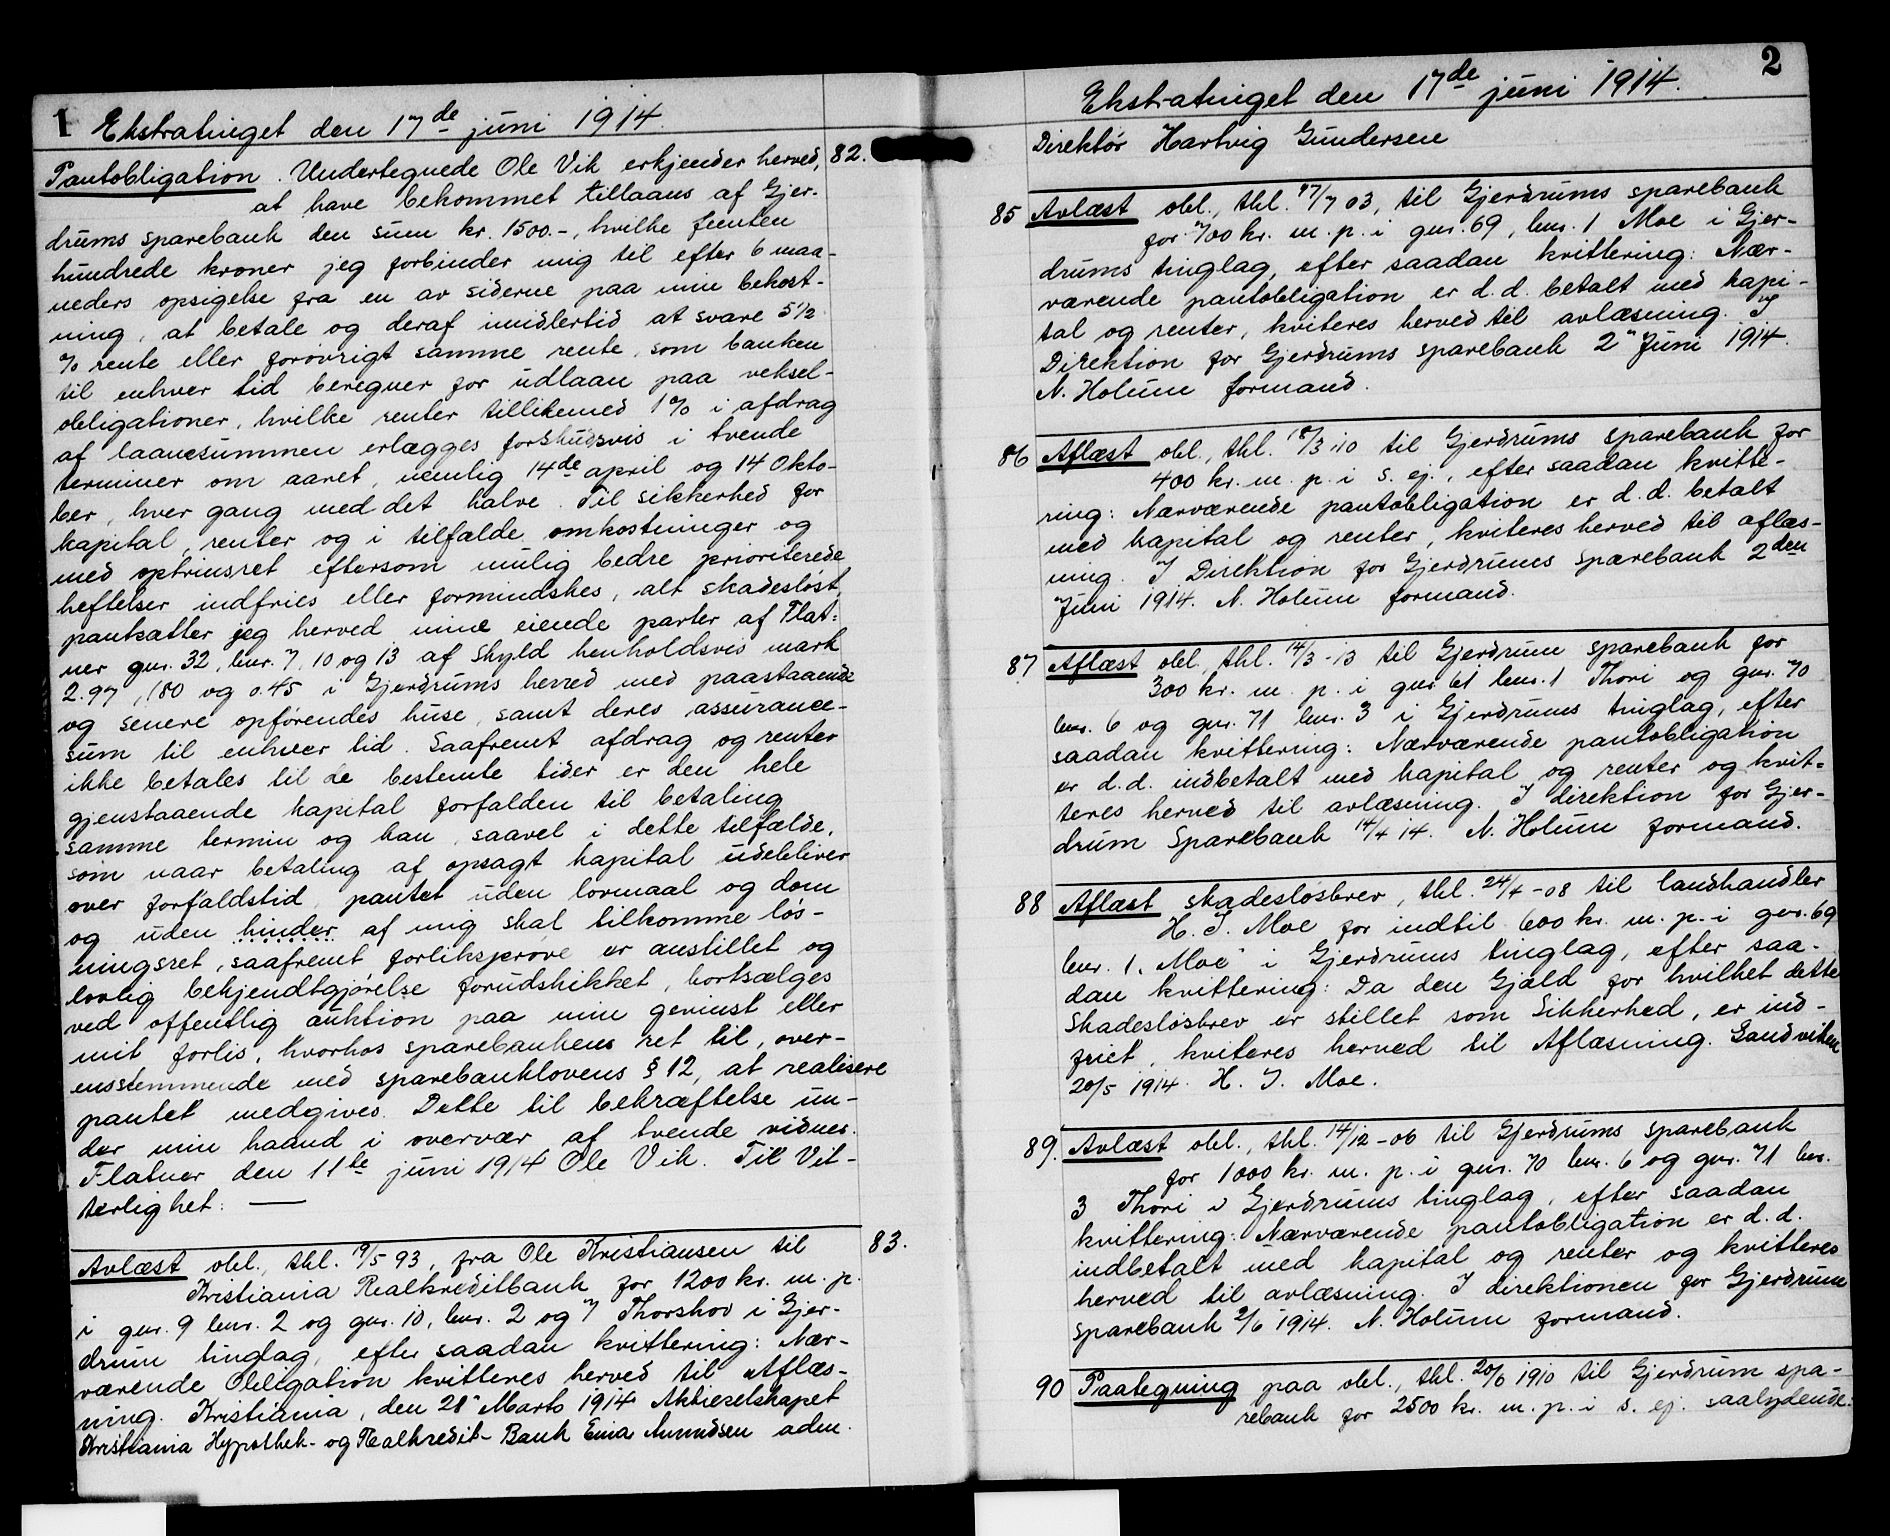 1 Ekstratinget den 17de juni 1914.
Pantobligation. Undertegnede Ole Vik erkjender herved, 82.
at have bekommet tillaans af Gjer-
drums sparebank den sum kr. 1500.-, hvilke femten
hundrede kroner jeg forbinder mig til efter 6 maa-
neders opsigelse fra en av siderne paa min bekost-
ning, at betale og deraf imidlertid at svare 5½
% rente eller forøvrigt samme rente, som banken
til enhver tid beregner for udlaan paa veksel-
obligationer, hvilke renter tillikemed 1% i afdrag
af laanesummen erlægges forskudsvis i tvende
terminer om aaret, nemlig 14de april og 14 Okto-
ber, hver gang med det halve. Til sikkerhed for
kapital, renter og i tilfælde omkostninger og
med optrinsret eftersom mulig bedre prioriterede
heftelser indfries eller formindskes, alt skadesløst,
pantsætter jeg herved mine eiende parter af Flat-
ner gnr. 32, bnr. 7, 10 og 13 af skyld henholdsvis mark
2.97, 1.80 og 0.45 i Gjerdrums herred med paastaaende
og senere opførendes huse, samt deres assurance-
sum til enhver tid. Saafremt afdrag og renter
ikke betales til de bestemte tider er den hele
gjenstaaende kapital forfalden til betaling
samme termin og kan, saavel i dette tilfælde,
som naar betaling af opsagt kapital udebliver
over forfaldstid, pantet uden lovmaal og dom
og uden hinder af mig skal tilkomme løs-
ningsret, saafremt forliksprøve er anstillet og
lovlig bekjendtgjørelse forudskikket, bortsælges
ved offentlig auktion paa min gevinst eller
mit forlis, hvorhos sparebankens ret til, over-
ensstemmende med sparebanklovens § 12, at realisere
pantet medgives. Dette til bekræftelse un-
der min haand i overvær af tvende vidner.
Flatner den 11te juni 1914 Ole Vik. Til Vit-
terlighet: —
Avlæst obl., thl. 19/5 93, fra Ole Kristiansen til 83.
Kristiania Realkreditbank for 1200 kr. m. p.
i gnr. 9 bnr. 2 og gnr. 10, bnr. 2 og 7 Thorshov i Gjer-
drum tinglag, efter saadan kvittering: Nær-
værende Obligation kvitteres herved til Aflæs-
ning. Kristiania, den 28' Marts 1914 Aktieselskapet
Kristiania Hypothek- og Realkredit- Bank Amundsen adm.
2
Ekstratinget den 17de juni 1914.
Direktør Hartvig Gundersen
85 Avlæst obl., thl. 17/7 03, til Gjerdrums sparebank
for 700 kr. m. p. i gnr. 69, bnr. 1 Moe i Gjer-
drums tinglag, efter saadan kvittering: Nær-
værende pantobligation er d. d. betalt med kapi-
tal og renter, kviteres herved til avlæsning. I
Direktion for Gjerdrums sparebank 2" Juni 1914.
N. Holum formand.
86 Aflæst obl., thl. 18/3-10 til Gjerdrums sparebank for
400 kr. m. p. i s. ej., efter saadan kvitte-
ring: Nærværende pantobligation er d. d. betalt
med kapital og renter, kviteres herved til aflæs-
ning. I Direktion for Gjerdrums Sparebank 2den
Juni 1914. N. Holum formand.
87 Aflæst obl., thl. 14/3-13 til Gjerdrum sparebank for
300 kr. m. p. i gnr 61 bnr. 1 Thori og gnr. 70
bnr. 6 og gnr. 71 bnr. 3 i Gjerdrums tinglag, efter
saadan kvittering: Nærværende pantobligation
er d. d. indbetalt med kapital og renter og kvit-
teres herved til avlæsning. I direktion for Gjer-
drum Sparebank 14/4 14. N. Holum formand.
88 Aflæst skadesløsbrev, thl. 24/4-08 til landhandler
H. J. Moe for indtil 600 kr. m. p. i gnr. 69
bnr. 1, Moe i Gjerdrums tinglag, efter saa-
dan kvittering: Da den Gjæld for hvilket dette
Skadesløsbrev er stillet som Sikkerhed, er ind-
friet, kviteres herved til Aflæsning. Sandviken
20/5 1914. H. J. Moe.
89. Avlæst obl., thl. 14/12-06 til Gjerdrums sparebank
for 1000 kr. m. p. i gnr. 70 bnr. 6 og gnr. 71 bnr.
3 Thori i Gjerdrums tinglag, efter saadan
kvittering: Nærværende pantobligation er d. d.
indbetalt med kapital og renter og kvitteres
herved til avlæsning. I direktionen for Gjerdrum
sparebank 2/6 1914. N. Holum formand.
90 Paategning paa obl., thl. 20/6 1910 til Gjerdrum spa-
rebank for 2500 kr. m. p. i s. ej. saalydende: